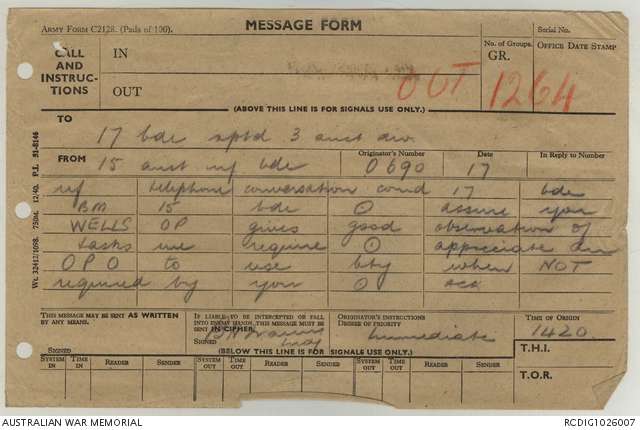 ARMY FORM C2128. (Pads of 100).
MESSAGE FORM
Serial No.
CALL AND INSTRUCTIONS
IN
OUT
No. of Groups.
GR.
OFFICE DATE STAMP
OUT 1264
(ABOVE THIS LINE IS FOR SIGNALS USE ONLY.)
TO
17 bde rptd 3 aust div
FROM
Originator's Number
Date
In Reply to Number
15 aust inf bde 0690 17
ref telephone conversation comd 17 bde
BM 15 bde O assure you
WELLS OP gives good observation of
tasks we require O appreciate div
OPO to use bty when NOT
required by you O ack
THIS MESSAGE MAY BE SENT AS WRITTEN BY ANY MEANS.
IF LIABLE TO BE INTERCEPTED OR FALL INTO ENEMY HANDS, THIS MESSAGE MUST BE SENT IN CIPHER.
ORIGINATOR'S INSTRUCTIONS
DEGREE OF PRIORITY
Immediate
TIME OF ORIGIN
1420
SIGNED
SIGNED
Maj
(BELOW THIS LINE IS FOR SIGNALS USE ONLY.)
T.H.I.
T.O.R.
SYSTEM IN
TIME IN
READER
SENDER
SYSTEM OUT
TIME OUT
READER
SENDER
SYSTEM OUT
TIME OUT
READER
SENDER
Wt. 32412/1098. 750M. 12/40. P.I. 51-8146
AUSTRALIAN WAR MEMORIAL
RCDIG1026007